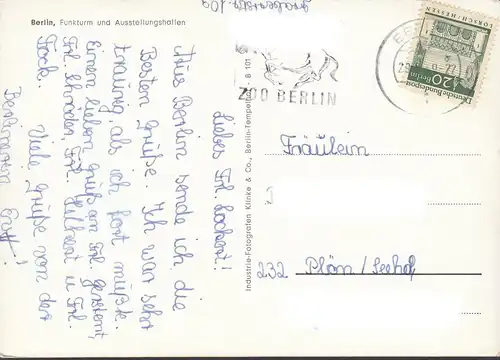 Berlin, Funkturm und Ausstellungshallen
Liebes Frl. Lockert!
Aus Berlin sende ich die
Besten Grüße. Ich war sehr
traurig, als ich fort mußte.
Einen lieben Gruß an Frl. Gerstent,
Frl. Schröder, Frl. Hilbert u. Frl.
Tock. Viele Grüße von der
Berlinerin
Industrie-Fotografen Klinke & Co., Berlin-Tempelhof - B 101
ZOO BERLIN
LORSCH/HESSEN
20
Deutsche Bundespost Berlin
Fräulein
232 Plön/Seehof